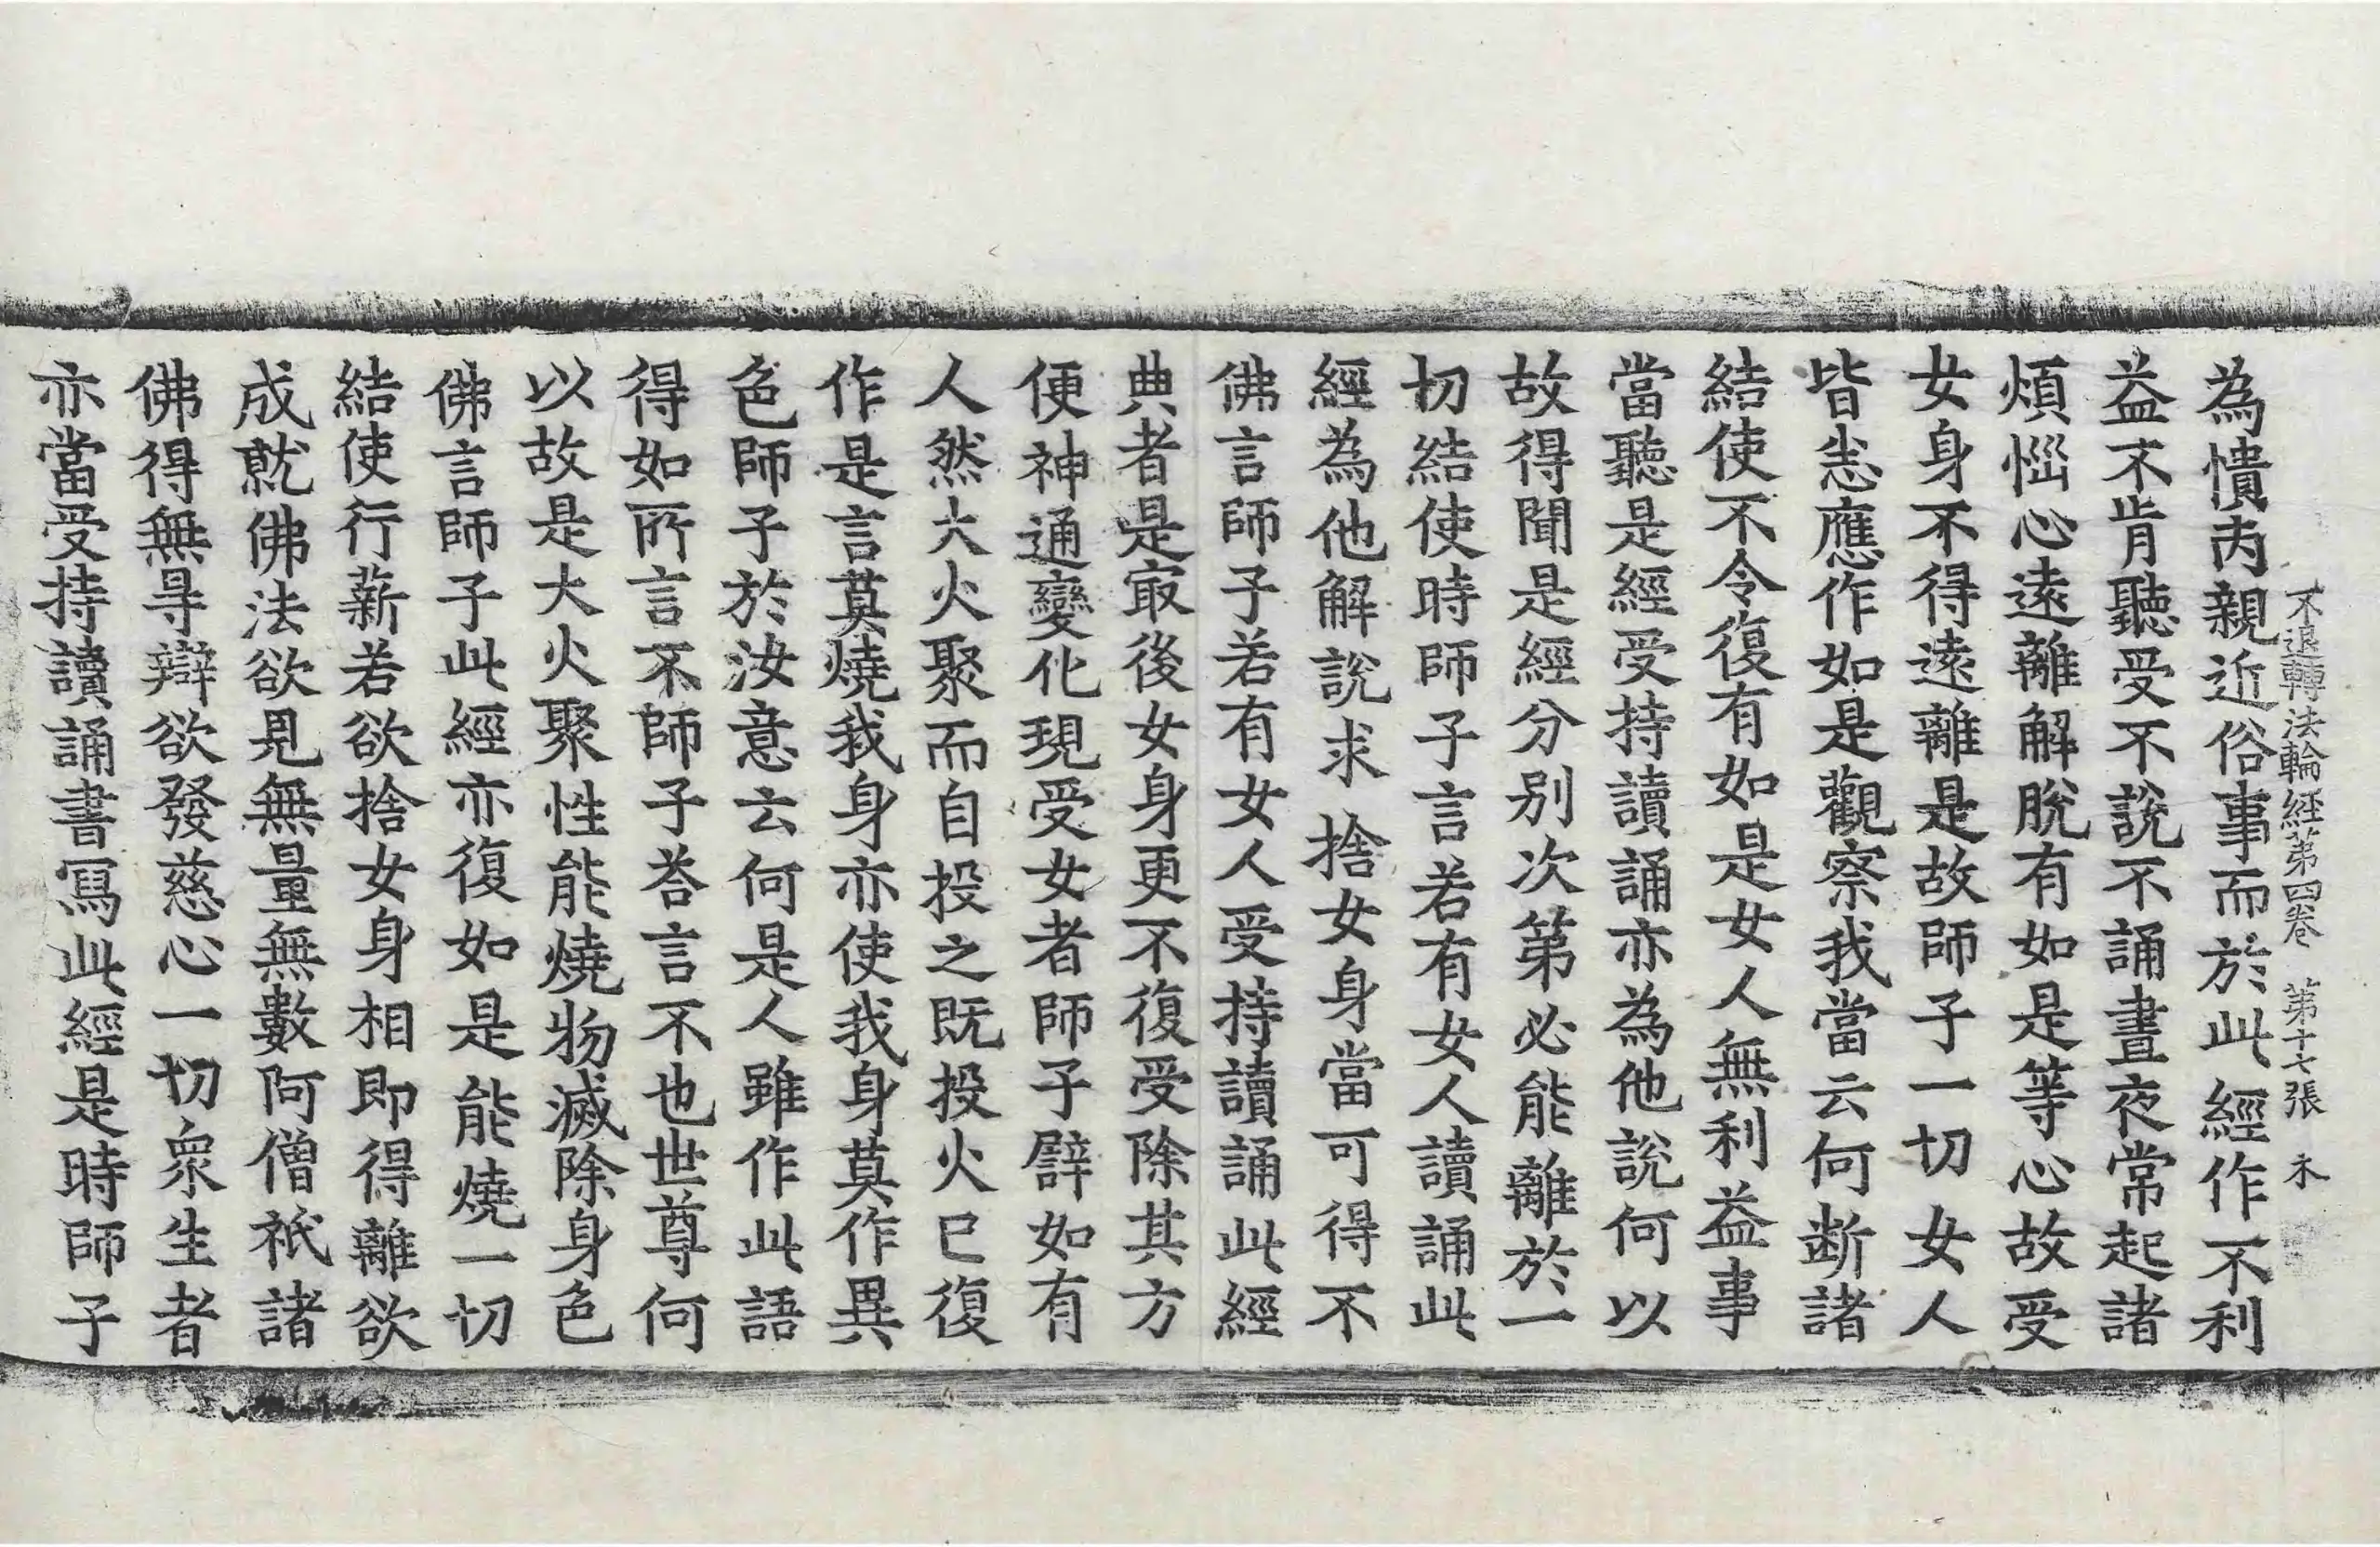 不退轉法輪經第四卷 第十七張 木
為憒丙親近俗事而於此經作不利
益不肯聽受不說不誦晝夜常起諸
煩惱心遠離解脫有如是等心故受
女身不得遠離是故師子一切女人
皆悉應作如是觀察我當云何斷諸
結使不令復有如是女人無利益事
當聽是經受持讀誦亦為他說何以
故得聞是經分別次第必能離於一
切結使時師子言若有女人讀誦此
經為他解說求捨女身當可得不
佛言師子若有女人受持讀誦此經
典者是㝡後女身更不復受除其方
便神通變化現受女者師子譬如有
人然大火聚而自投之既投火已復
作是言莫燒我身亦使我身莫作異
色師子於汝意云何是人雖作此語
得如所言不師子荅言不也世尊何
以故是大火聚性能燒物滅除身色
佛言師子此經亦復如是能燒一切
結使行薪若欲捨女身相即得離欲
成就佛法欲見無量無數阿僧祇諸
佛得無㝵辯欲發慈心一切衆生者
亦當受持讀誦書寫此經是時師子